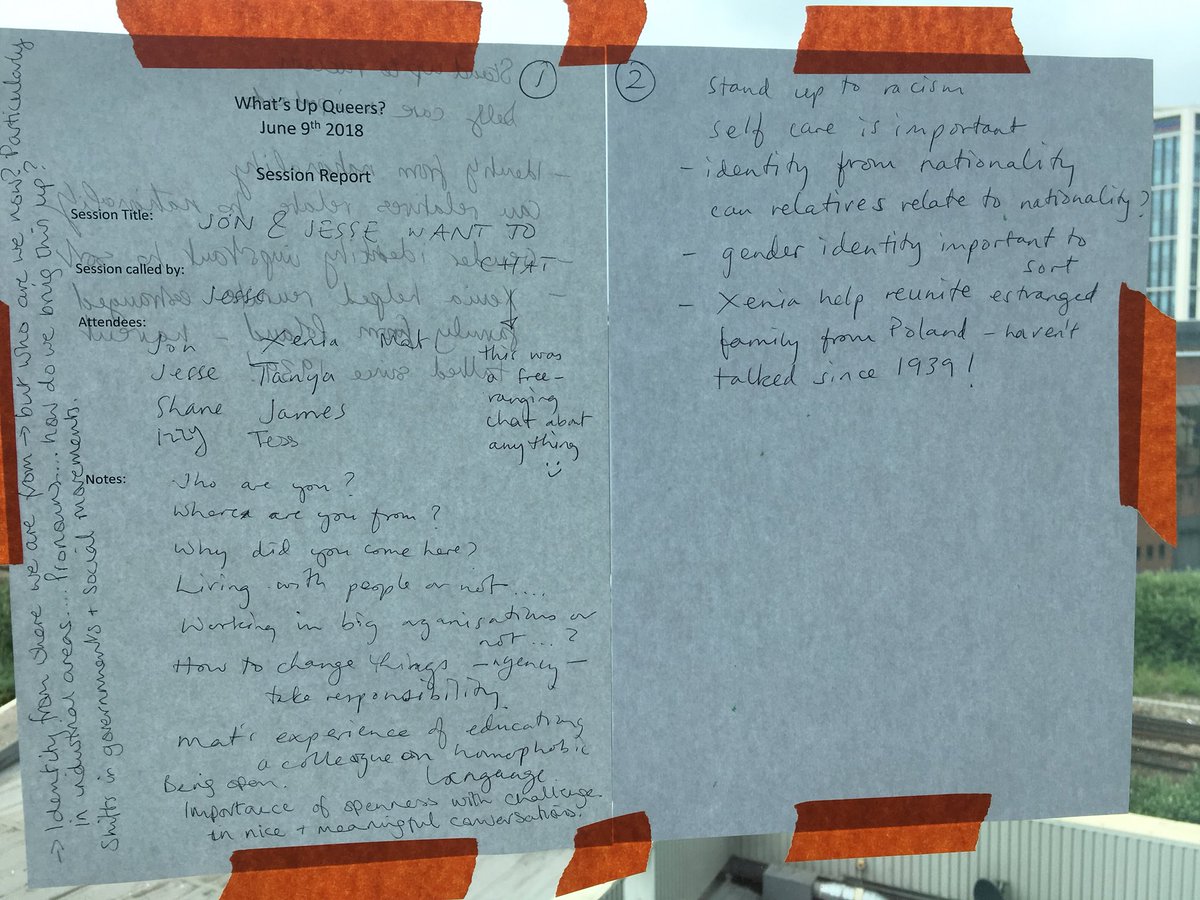 1
What's Up Queers?
June 9th 2018
Session Report
Session Title: JON & JESSE WANT TO
CHAT
Session called by: Jesse
Attendees:
Jon Xenia Mat
Jesse Tanya
Shane James
Izzy Tess
this was
a free-
ranging
chat about
anything
Notes: Who are you?
Where are you from?
Why did you come here?
Living with people or not....
Working in big organisations or
not...?
How to change things - agency -
take responsibility
Mat's experience of educating
a colleague on homophobic
language
Being open.
Importance of openness with challenge
in nice + meaningful conversations.
→ Identity from where we are from → but who are we now? Particularly
in industrial areas.... Pronouns.... how do we bring this up?
Shifts in governments + social movements.
2
Stand up to racism
self care is important
- identity from nationality
can relatives relate to nationality?
- gender identity important to
sort
- Xenia help reunite estranged
family from Poland - haven't
talked since 1939!